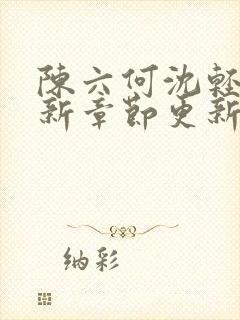 陳六何沈輕
新章節更新
纳彩